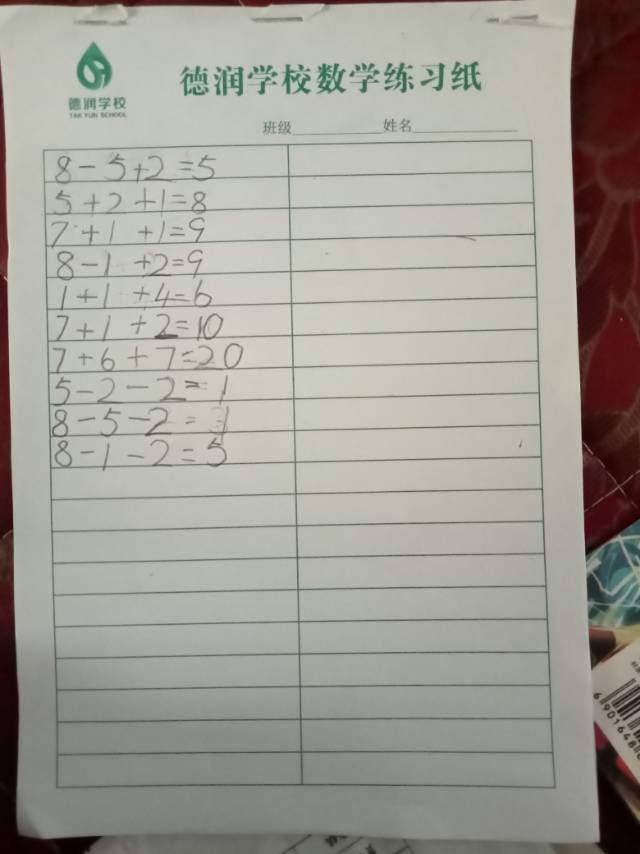 德润学校
TAK YUN SCHOOL
德润学校数学练习纸
班级 姓名
8-5+2=5
5+2+1=8
7+1+1=9
8-1+2=9
1+1+4=6
7+1+2=10
7+6+7=20
5-2-2=1
8-5-2=1
8-1-2=5
6901648